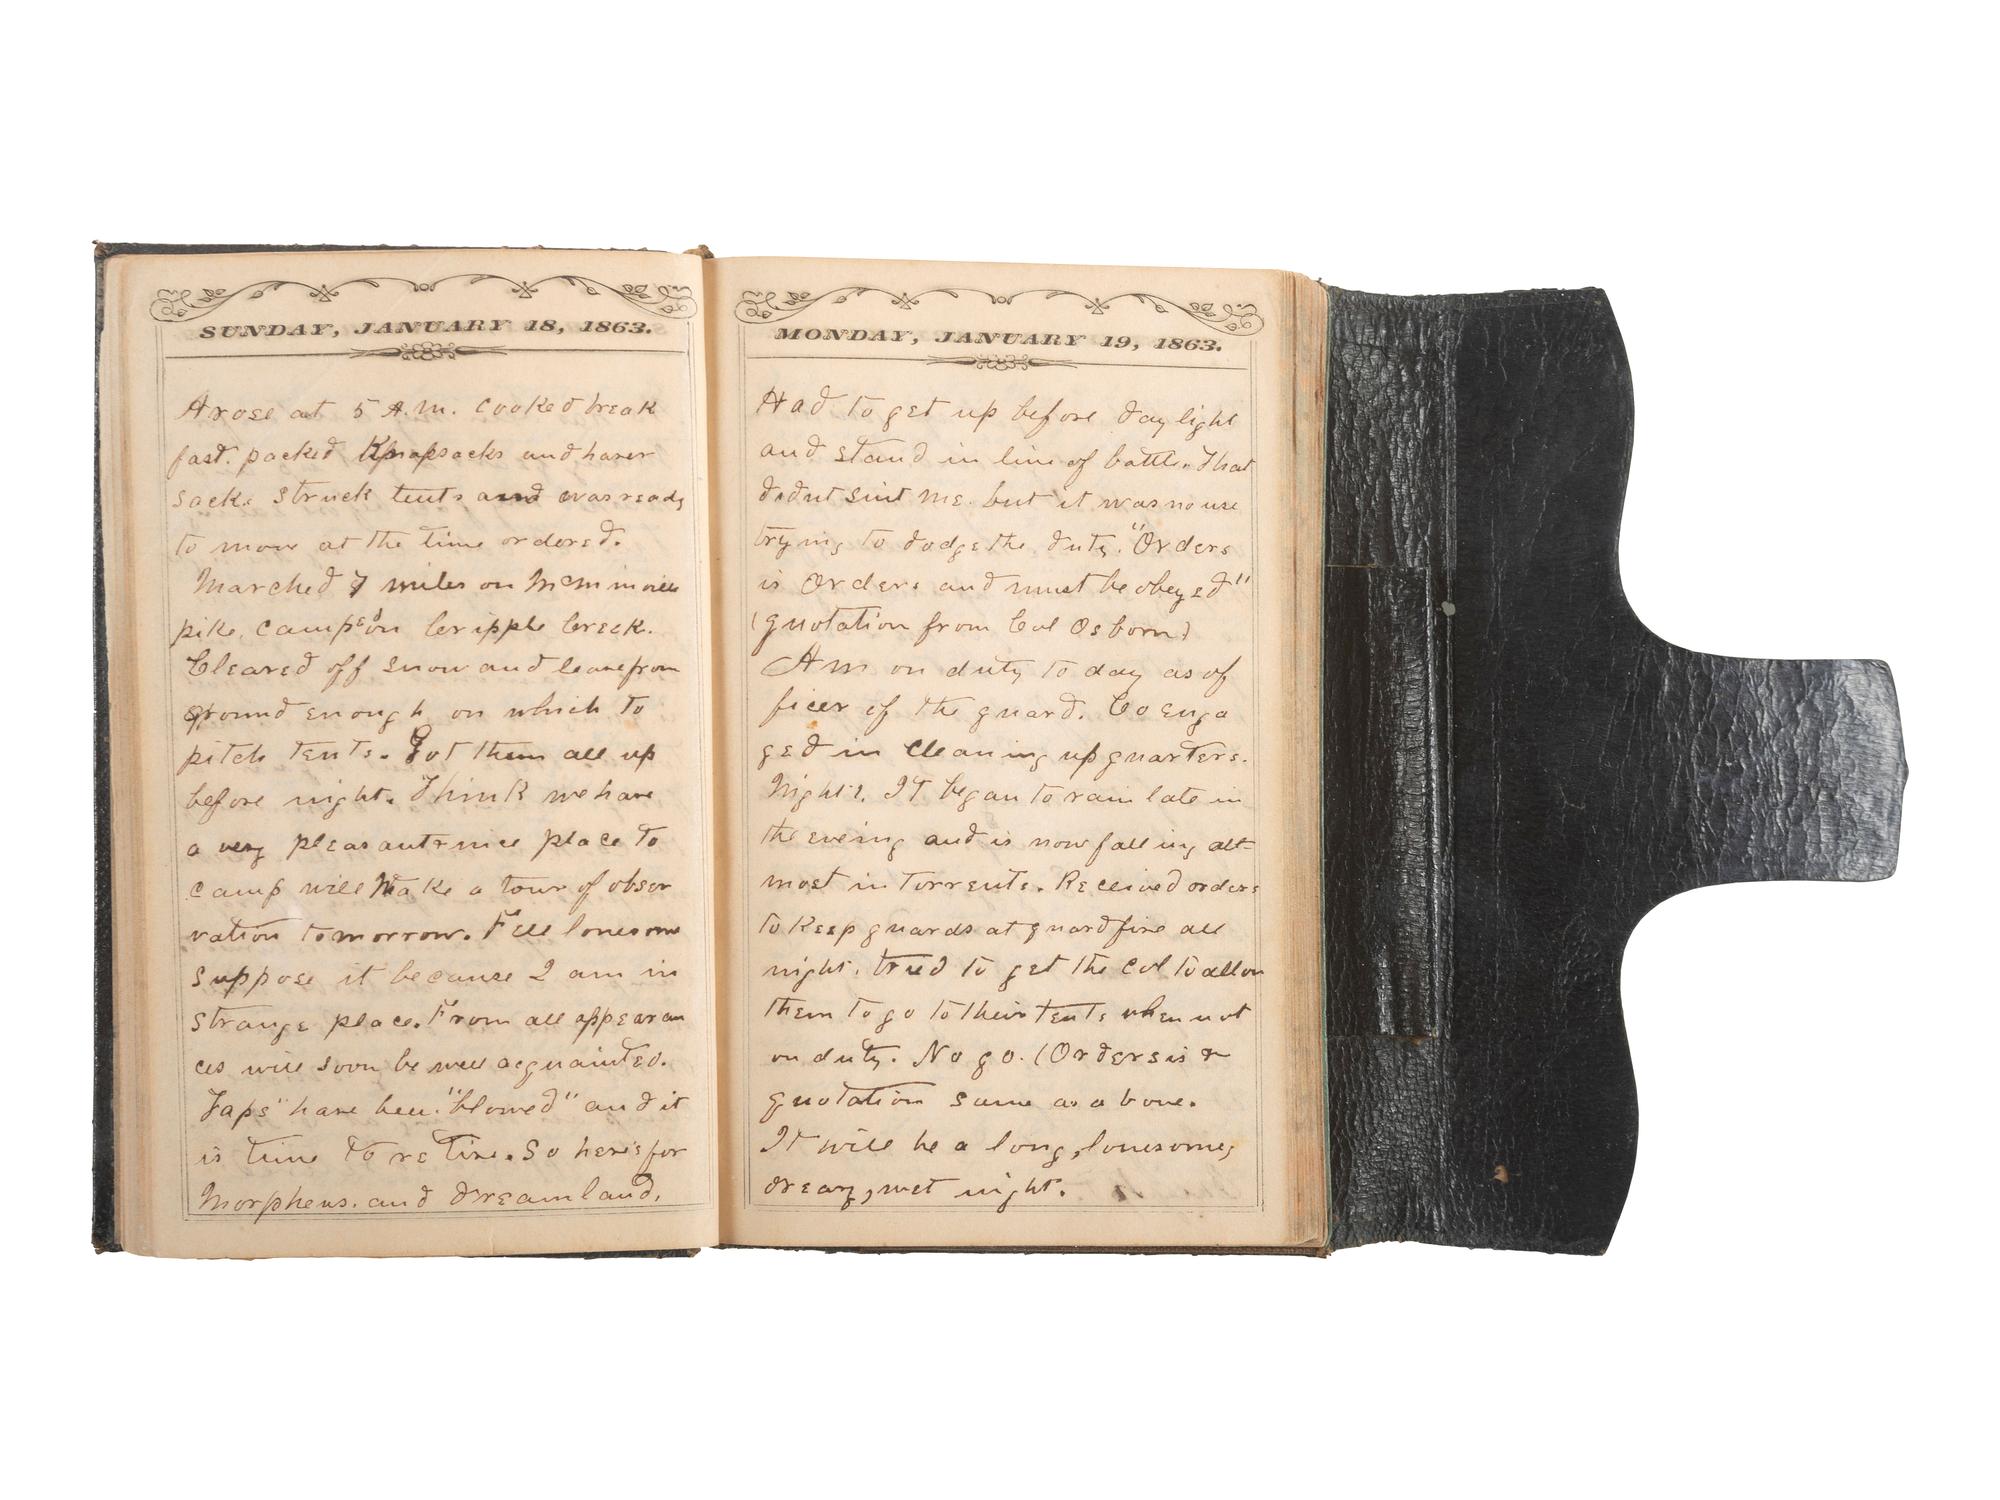 SUNDAY, JANUARY 18, 1863.
Arose at 5 A.M. cooked break
fast. packed Knapsacks and haver
sacks struck tents and was ready
to move at the time ordered.
Marched 7 miles on McMinnville
pike, camped on Cripple Creek.
Cleared off snow and leaves from
ground enough on which to
pitch tents. Got them all up
before night. Think we have
a very pleasant & nice place to
camp will Make a tour of obser
vation tomorrow. Feel lonesome
suppose it because I am in
strange place. From all appearan
ces will soon be well acquainted.
Taps" have been "blowed" and it
is time to retire. So here's for
Morpheus. and dreamland.
MONDAY, JANUARY 19, 1863.
Had to get up before day light
and stand in line of battle. That
didnt suit me. but it was no use
trying to dodge the duty. "Orders
is Orders and must be obeyed"
(quotation from Col Osborn)
Am on duty to day as of
ficer of the guard. Co enga
ged in cleaning up quarters.
Night. It began to rain late in
the evening and is now falling all-
most in torrents. Received orders
to keep guards at guard fire all
night. tried to get the Col to allow
them to go to their tents when not
on duty. No go. (Orders is &
quotation same as above.
It will be a long, lonesome,
dreary, wet night.